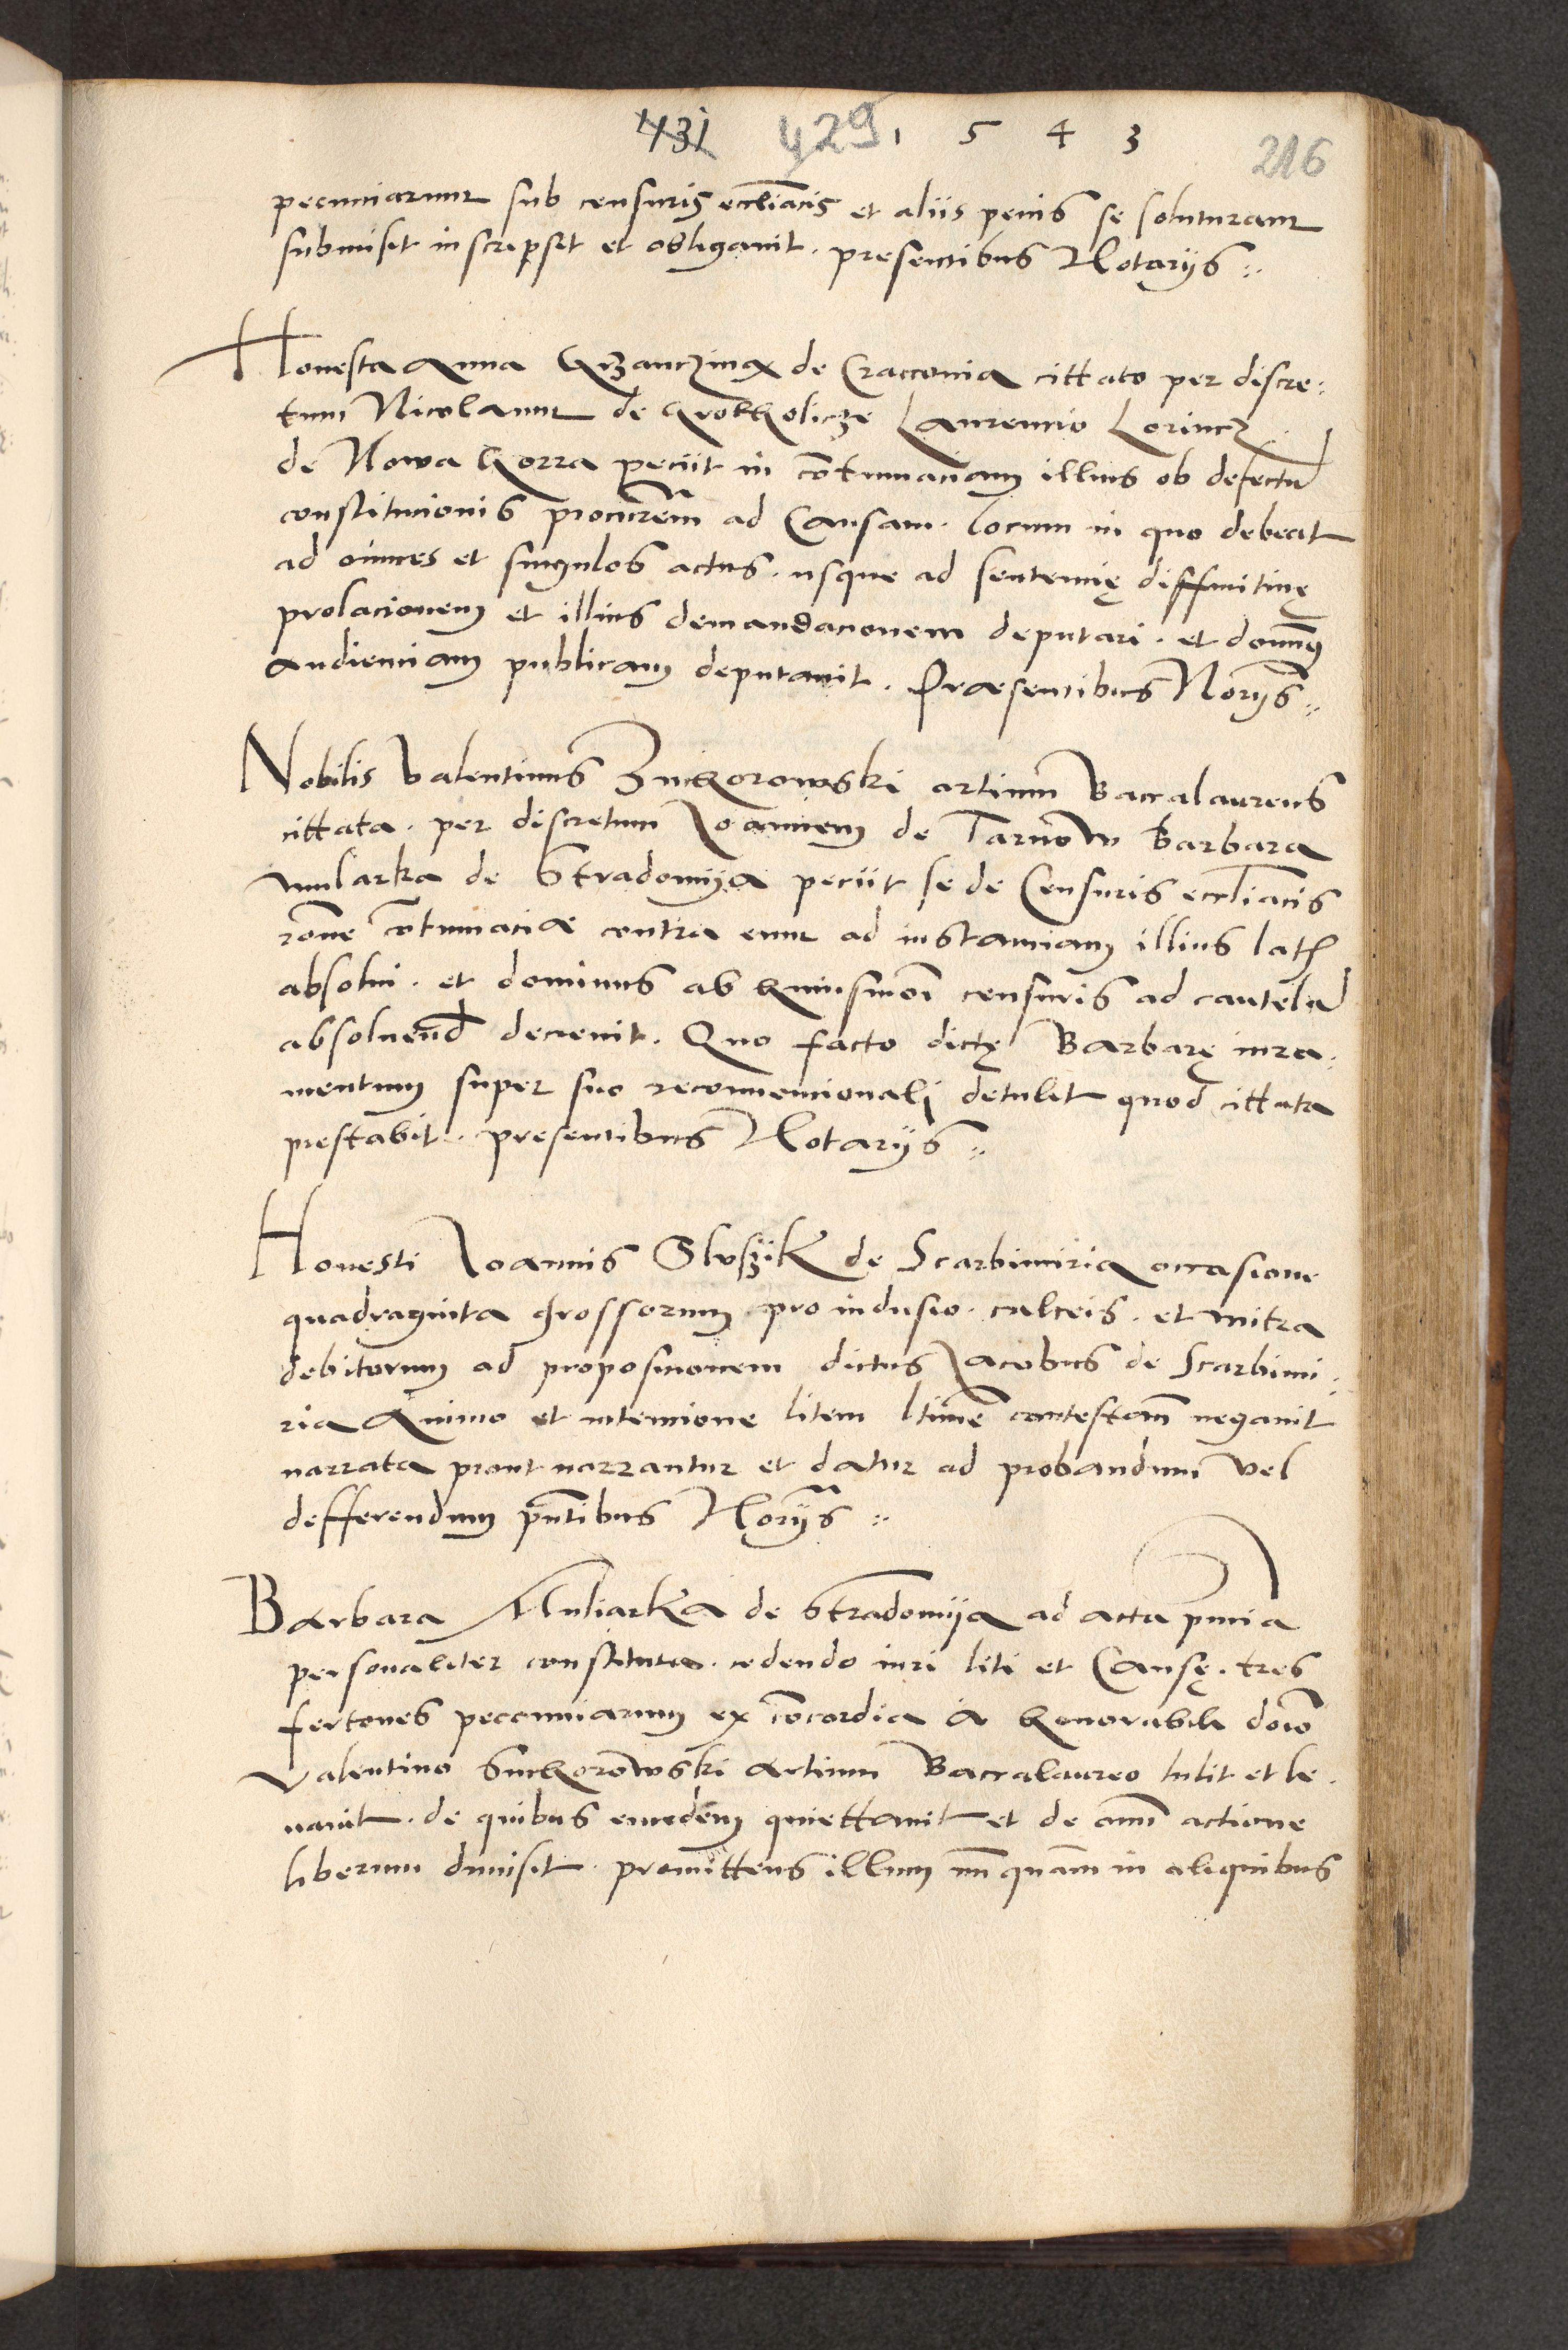 431 429 1 5 4 3 216
pecuniarum sub censuris eccliacis et aliis penis se soluturam
submisit inscripsit et obligavit . presentibus Notarijs
Honesta Anna de Cracovia cittato per discre
tum Nicolaum de Laurencio Lorincz
de Nowa Gorra peciit in contumaciam illius ob defectu
constitucionis procurem ad Causam . locum in quo debeat
ad omnes et singulos actus . usque ad sentencię diffinitivę
prolacionem et illius demandacionem deputari . et dominus
audienciam publicam deputavit . Praesentibus Norijs
Nobilis Valentinus artium Baccalaureus
cittata . per discretum Joannem de Tarnow Barbara
mularka de Stradomija peciit se de Censuris eccliacis
rone contumaciae contra eum ad instanciam illius lat
absolvi . et dominus ab huiusmoi censuris ad cautela
absolvend decrevit . Quo facto dictę Barbarę iura
mentum super suo reconvencionali detulit quod cittata
prestabit . presentibus Notarijs
Honesti Joannis de Scarbimiria occasione
quadraginta grossorum pro indusio . calceis . et mitra
debitorum ad proposicionem dictus Jacobus de Scarbimi
ria Animo et intencione litem ltime contestam negavit
narrata prout narrantur et datur ad probandum vel
defferendum pntibus Norijs
Barbara Muliarka de Stradomija ad acta pncia
personaliter constituta . cedendo iuri liti et Causę . tres
fertones peccuniarum ex concordia a honorabili domo
Valentino Suchorowski Artium Baccalaureo tulit et le
vavit . de quibus eundem quiettavit et de omi actione
liberum dimisit . promittens illum nunquam in aliquibus